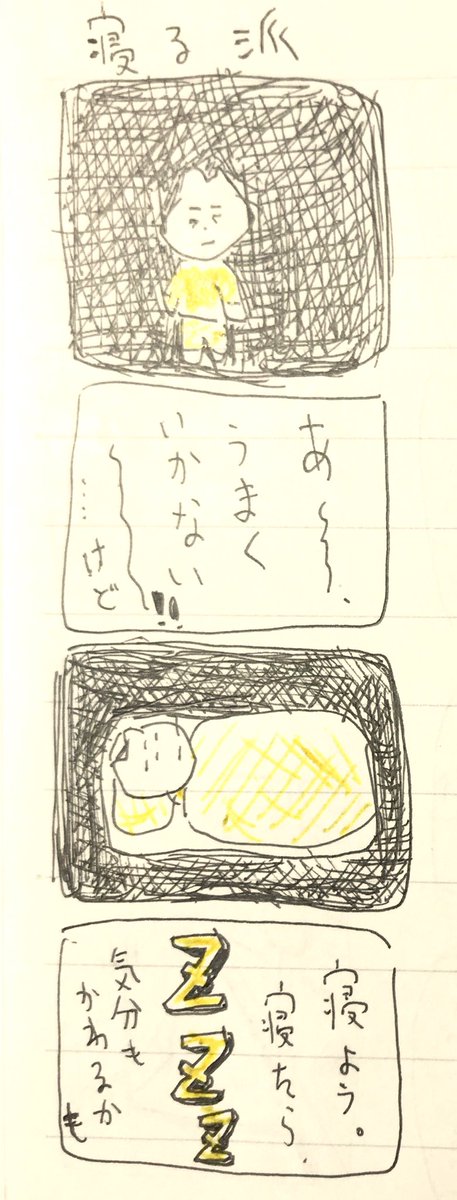 寝る派
あ〜〜、
うまく
いかない
〜〜!!
…けど
寝よう。
寝たら、
ZZZ
気分も
かわるか
も